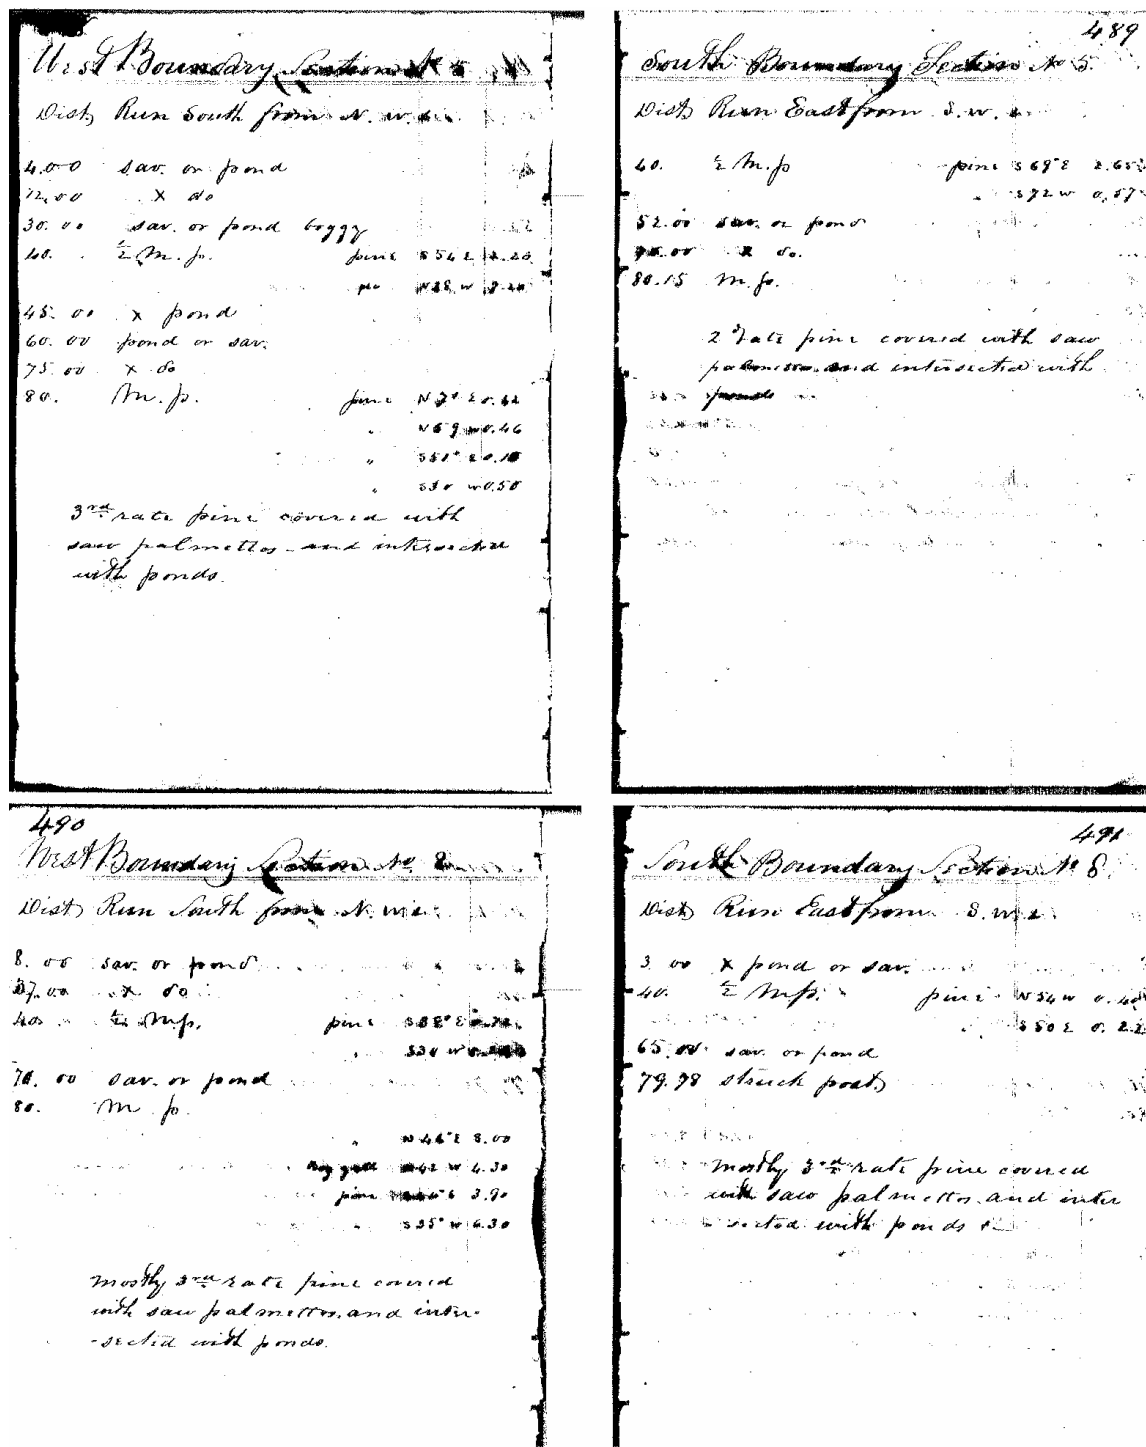 West Boundary Section No 5
Dist Run South from N. W.
4.00 sav. or pond
12.00 X do
30.00 sav. or pond boggy
40. ½ M. p. pine S54 E
N28 W
45.00 X pond
60.00 pond or sav.
75.00 X do
80. M. p. pine
N69 W 0.46
S51° E 0.18
S30 W 0.50
3rd rate pine covered with
saw palmettos and intersected
with ponds.
489
South Boundary Section No 5.
Dist Run East from S. W.
40. ½ M. p pine S69°E 2.65
" S72 W 0.57
52.00 sav. or pond
X do.
80.15 M. p.
2 rate pine covered with saw
palmettos and intersected with
ponds
490
West Boundary Section No. 8
Dist Run South from N. W.
8.00 sav. or pond
X do
40 ½ M. p. pine
" S30 W
70.00 sav. or pond
80. M. p.
" N46°E 8.00
bay gall W 4.30
pine 3.90
" S35° W 6.30
Mostly 3rd rate pine covered
with saw palmettos, and inter-
-sected with ponds.
491
South Boundary Section No 8
Dist Run East from S. W.
3.00 X pond or sav.
40. ½ M p. pine N54 W
" S50 E
65.00 sav. or pond
79.98 struck post
Mostly 3rd rate pine covered
with saw palmettos and inter
sected with ponds